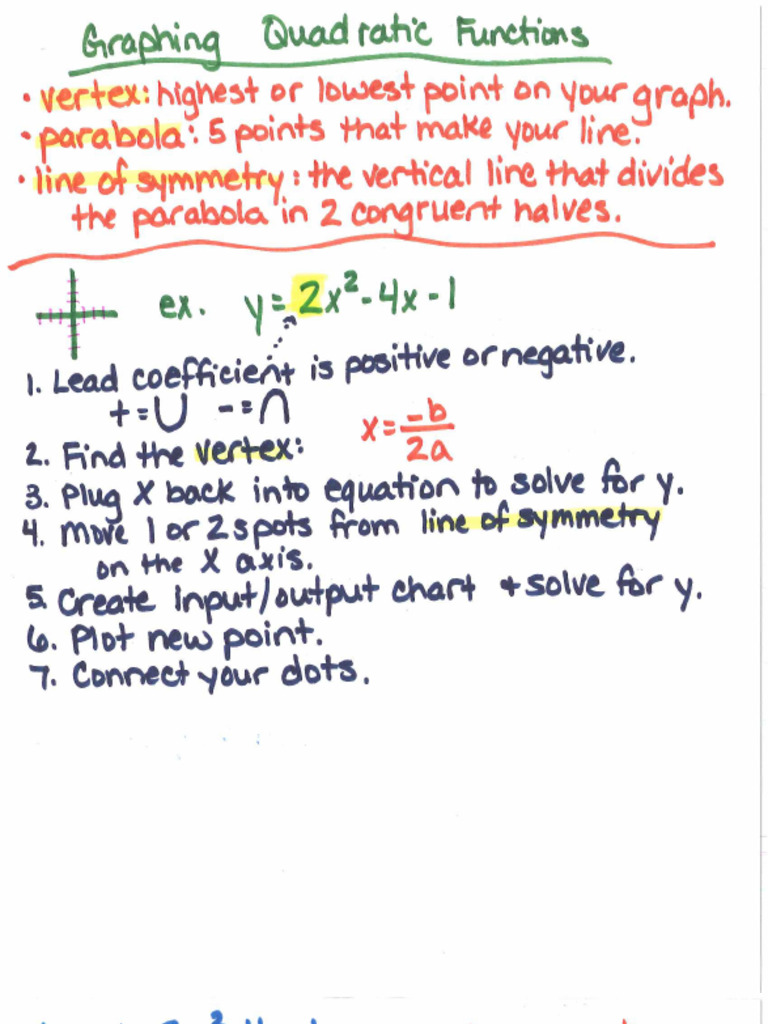 Graphing Quadratic Functions
• vertex: highest or lowest point on your graph.
• parabola: 5 points that make your line.
• line of symmetry: the vertical line that divides
the parabola in 2 congruent halves.
ex. y = 2x² - 4x - 1
1. Lead coefficient is positive or negative.
+ = ∪ - = ∩
x = -b/2a
2. Find the vertex:
3. Plug x back into equation to solve for y.
4. Move 1 or 2 spots from line of symmetry
on the X axis.
5. Create input/output chart + solve for y.
6. Plot new point.
7. Connect your dots.